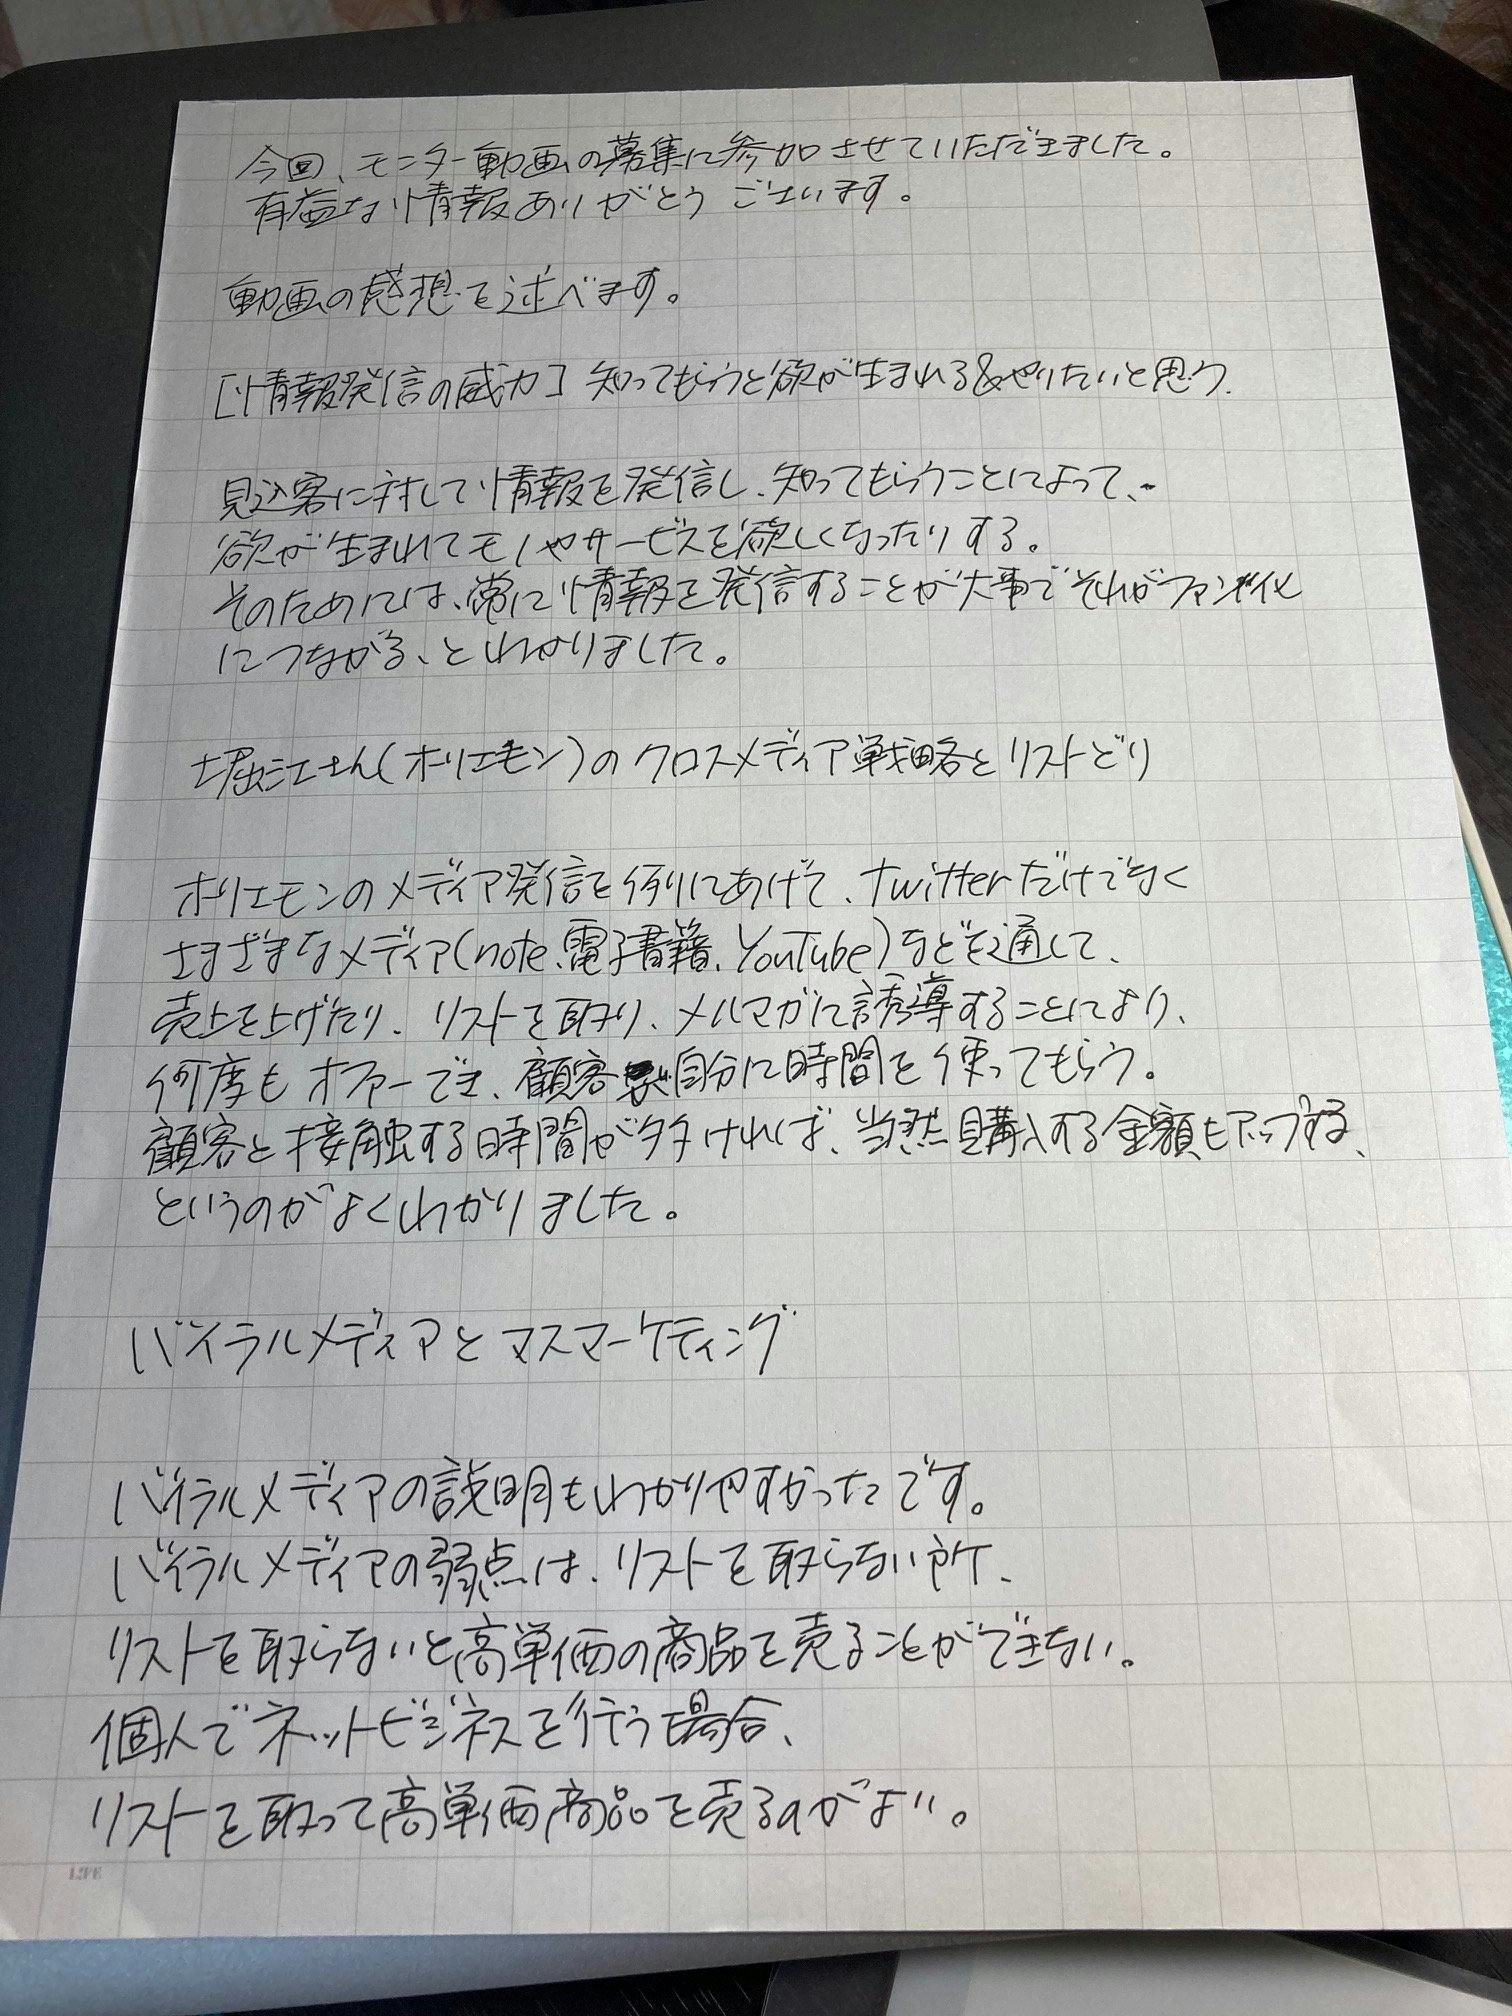 今回、モニター動画の募集に参加させていただきました。
有益な情報ありがとうございます。
動画の感想を述べます。
[情報発信の威力] 知ってもらうと欲が生まれる&やりたいと思う.
見込客に対して情報を発信し、知ってもらうことによって、
欲が生まれてモノやサービスを欲しくなったりする。
そのためには、常に情報を発信することが大事でそれがファン化
につながる、とわかりました。
堀江さん(ホリエモン)のクロスメディア戦略とリストどり
ホリエモンのメディア発信を例にあげて、twitterだけでなく
さまざまなメディア(note、電子書籍、YouTube)などを通して、
売上を上げたり、リストを取り、メルマガに誘導することにより、
何度もオファーでき、顧客 自分に時間を使ってもらう。
顧客と接触する時間が多ければ、当然購入する金額もアップする、
というのがよくわかりました。
バイラルメディアとマスマーケティング
バイラルメディアの説明もわかりやすかったです。
バイラルメディアの弱点は、リストを取らない所、
リストを取らないと高単価の商品を売ることができない。
個人でネットビジネスを行う場合、
リストを取って高単価商品を売るのがよい。
LIFE